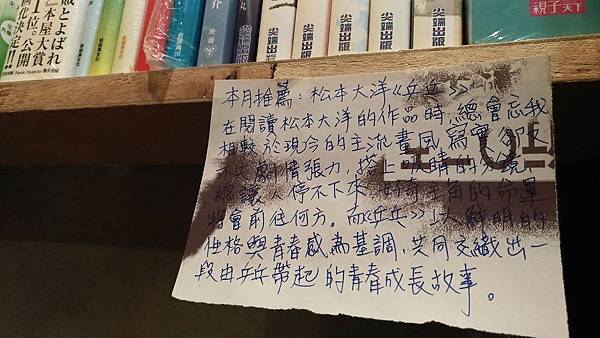 敗とよばれ
『本屋大賞
1位。公開
化決定!!
介
丸
尖端出版
尖端出版
尖端出版
尖端出版
尖端出版
尖端出版
親子天下
本月推薦：松本大洋《乒乓》
在閱讀松本大洋的作品時，總會忘我
相較於現今的主流畫風，寫實
不失劇情張力，搭上吸睛的分鏡
總讓人停不下來 好奇主角的命運
將會前往何方。而《乒乓》以鮮明的
性格與青春感為基調，共同交織出一
段由乒乓帶起的青春成長故事。